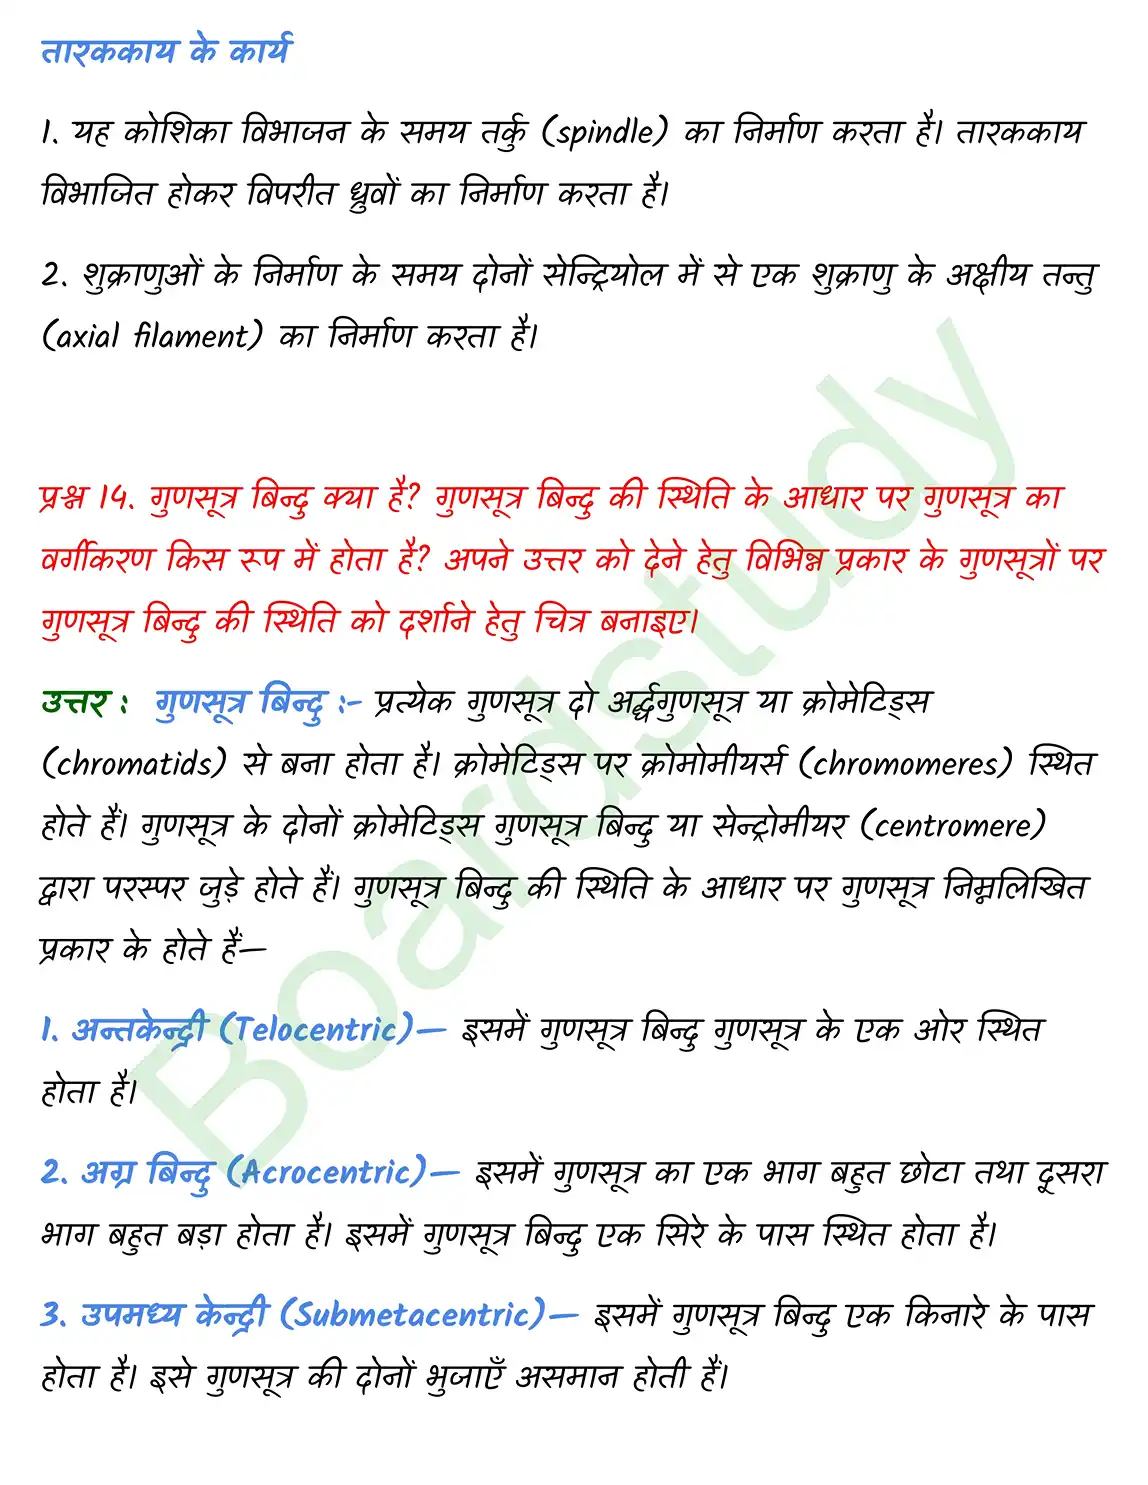 तारककाय के कार्य
1. यह कोशिका विभाजन के समय तर्कु (spindle) का निर्माण करता है। तारककाय
विभाजित होकर विपरीत ध्रुवों का निर्माण करता है।
2. शुक्राणुओं के निर्माण के समय दोनों सेन्ट्रियोल में से एक शुक्राणु के अक्षीय तन्तु
(axial filament) का निर्माण करता है।
प्रश्न 14. गुणसूत्र बिन्दु क्या है? गुणसूत्र बिन्दु की स्थिति के आधार पर गुणसूत्र का
वर्गीकरण किस रूप में होता है? अपने उत्तर को देने हेतु विभिन्न प्रकार के गुणसूत्रों पर
गुणसूत्र बिन्दु की स्थिति को दर्शाने हेतु चित्र बनाइए।
उत्तर : गुणसूत्र बिन्दु :- प्रत्येक गुणसूत्र दो अर्द्धगुणसूत्र या क्रोमेटिड्स
(chromatids) से बना होता है। क्रोमेटिड्स पर क्रोमोमीयर्स (chromomeres) स्थित
होते हैं। गुणसूत्र के दोनों क्रोमेटिड्स गुणसूत्र बिन्दु या सेन्ट्रोमीयर (centromere)
द्वारा परस्पर जुड़े होते हैं। गुणसूत्र बिन्दु की स्थिति के आधार पर गुणसूत्र निम्नलिखित
प्रकार के होते हैं—
1. अन्तकेन्द्री (Telocentric)— इसमें गुणसूत्र बिन्दु गुणसूत्र के एक ओर स्थित
होता है।
2. अग्र बिन्दु (Acrocentric)— इसमें गुणसूत्र का एक भाग बहुत छोटा तथा दूसरा
भाग बहुत बड़ा होता है। इसमें गुणसूत्र बिन्दु एक सिरे के पास स्थित होता है।
3. उपमध्य केन्द्री (Submetacentric)— इसमें गुणसूत्र बिन्दु एक किनारे के पास
होता है। इसे गुणसूत्र की दोनों भुजाएँ असमान होती हैं।
Boardstudy